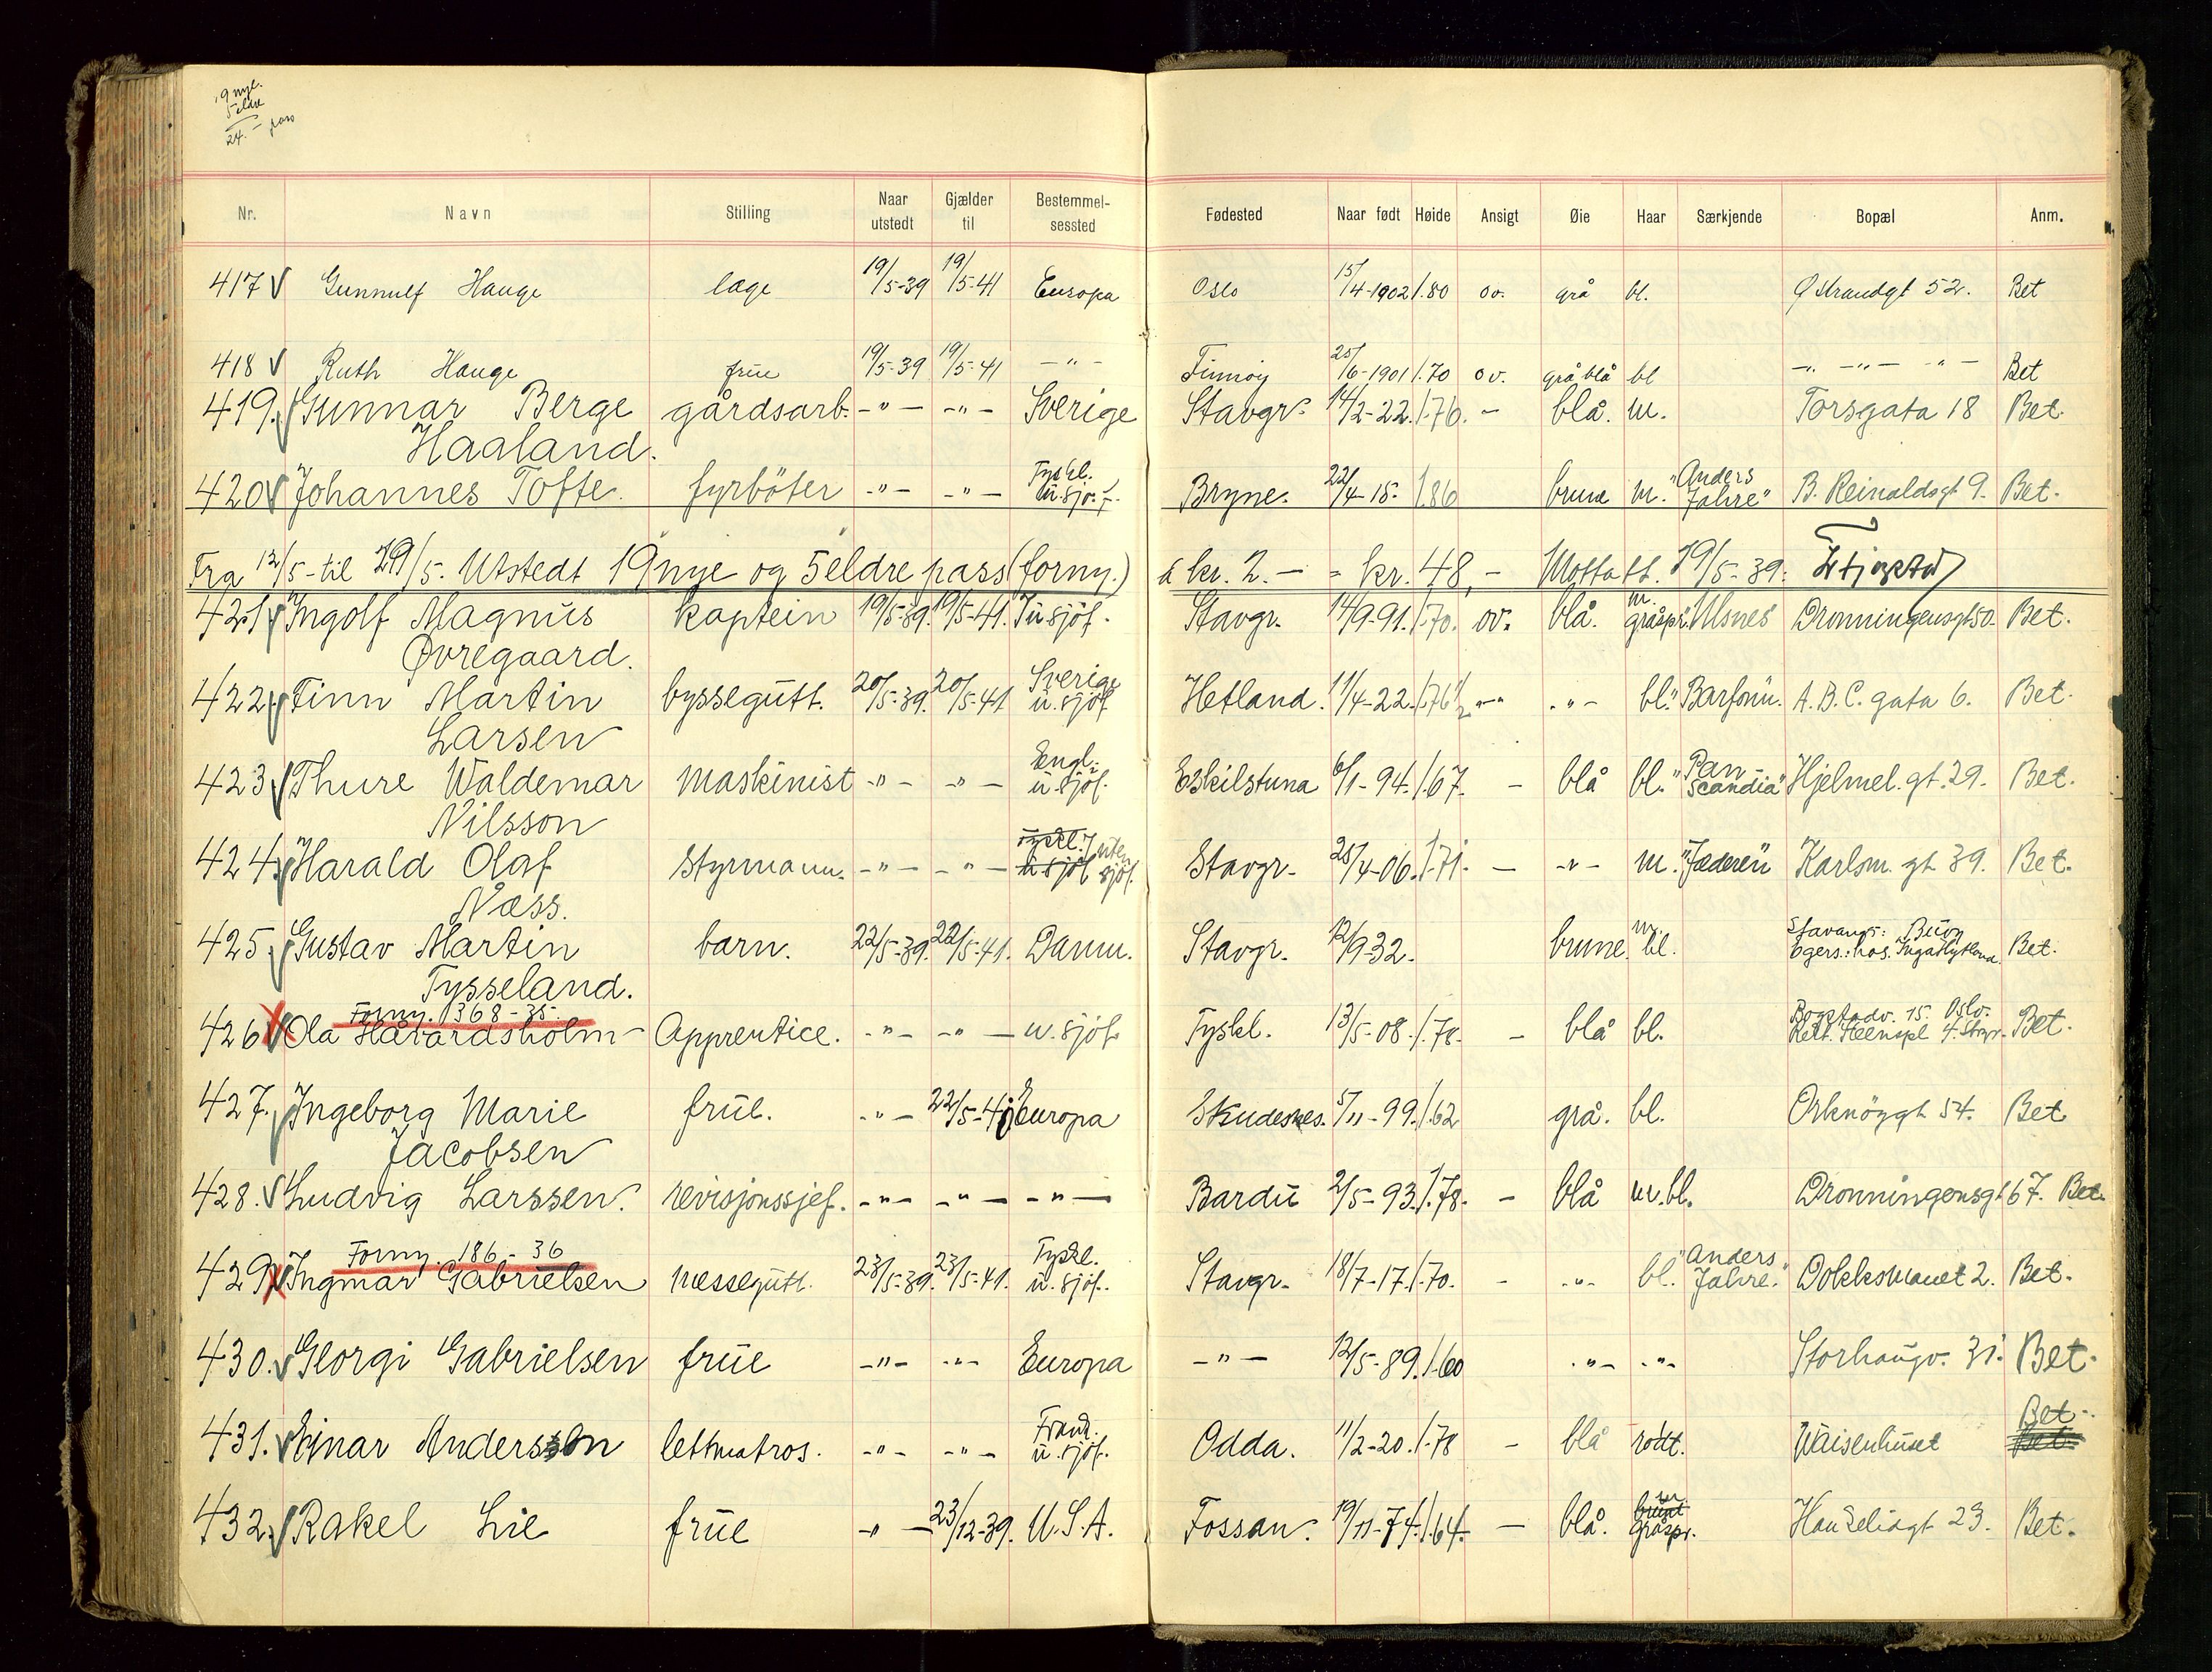 19 nye.
5 eldre
24.- pass
Nr. Navn Stilling Naar utstedt Gjælder til Bestemmelsessted Fødested Naar født Høide Ansigt Øie Haar Særkjende Bopæl Anm.
417 V Gunnulf Hauge læge 19/5-39 19/5-41 Europa Oslo 15/4-1902 1.80 ov. grå bl. Østrandgt 52. Bet
418 V Ruth Hauge frue 19/5-39 19/5-41 -"- Finnøy 25/6-1901 1.70 ov. grå blå bl -"- -"- -"- Bet
419. V Gunnar Berge gårdsarb. -"- -"- Sverige Stavgr. 14/2-22. 1.76. - blå. m. Torsgata 18 Bet.
Haaland.
420 V Johannes Tofte. fyrböter -"- -"- Tyskl. u. sjöf. Bryne. 22/4-15. 1.86 brune m. "Anders Jahre" B. Reinaldsgt 9. Bet.
Fra 12/5-til 19/5. Utstedt 19 nye og 5 eldre pass (forny.) à kr. 2.- = kr. 48,- Mottatt. 19/5-39.
421 V Ingolf Magnus kaptein 19/5-39. 19/5-41. u sjöf. Stavgr. 14/9-91. 1.70. ov. blå. m. gråspr. "Ulsnes" Dronningensgt 50. Bet.
Øvregaard.
422 V Finn Martin byssegutt. 20/5-39. 20/5-41 Sverige u. sjöf Hetland. 11/4-22. 1.76½ -"- -"- bl. "Barfonn. A.B.C. gata 6. Bet.
Larsen
423 V Thure Waldemar maskinist -"- -"- Engl. u. sjöf. Eskilstuna 6/1-94. 1.67. - blå bl. "Pan-Scandia" Hjelmel. gt. 29. Bet.
Nilsson
424. V Harald Olaf Styrmann. -"- -"- Tyskl. u sjöf uten sjöf. Stavgr. 25/4-06. 1.71. - -"- m. "Jæderen" Karlsm. gt 39. Bet.
Næss.
425. V Gustav Martin barn. 22/5-39. 22/5-41. Danm. Stavgr. 12/9-32. brune. m. bl. Stavangr: Buøy Bet.
Tysseland.
Forny. 1368-35.
426 V Ola Havardsholm Apprentice. -"- -"- u. sjöf Tyskl. 13/5-08. 1.78. - blå bl. Bogstadv. 15. Oslo. Bet.
427. V Ingeborg Marie frue. -"- 22/5-41 Europa Skudesnes. 5/11-99. 1.62 grå. bl. Orknöygt 54. Bet
Jacobsen
428. V Ludvig Larssen. revisjonssjef. -"- -"- -"- Bardu 2/5-93. 1.78. - blå m. bl. Dronningensgt 67. Bet.
Forny. 186-36
429 V Ingmar Gabrielsen messegutt. 23/5-39. 23/5-41. Tyskl. u. sjöf. Stavgr. 18/7-17. 1.70. - -"- bl. "Anders Jahre." Dokksmauet 2. Bet.
430. V Georgi Gabrielsen frue -"- -"- Europa -"- 12/5-89. 1.60 -"- -"- Storhaugv. 31. Bet.
431. V Einar Anderson lettmatros. -"- -"- Frankr. u. sjöf. Odda. 11/2-20. 1.78 - blå rödt. Waisenhuset Bet. Bet.
432. V Rakel Lie frue -"- 23/12-39. U.S.A. Fossan. 19/11-74. 1.64. - blå. brunt gråspr. 23. Bet.